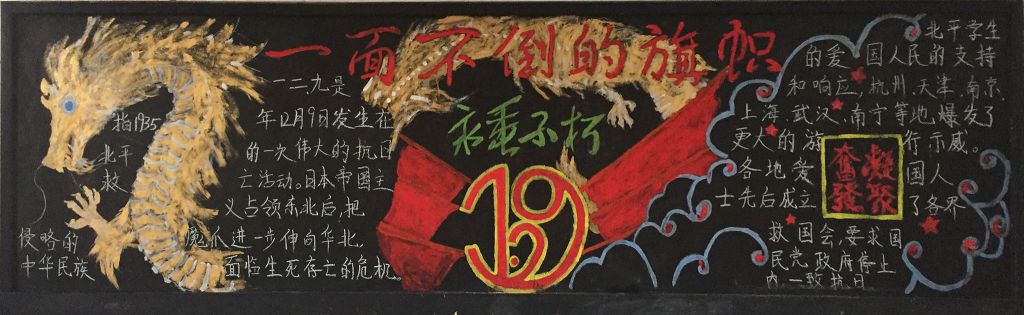 一面不倒的旗帜
一二九是
指1935 年12月9日发生在
北平 的一次伟大的抗日
救 亡活动。日本帝国主
义占领东北后,把
侵略的 魔爪进一步伸向华北,
中华民族 面临生死存亡的危机。
永垂不朽
129
北平学生
的爱国人民的支持
和响应,杭州、天津、南京、
上海、武汉、南宁等地,爆发了
更人的游 行示威。
各地爱 国人
士先后成立 了各界
救国会,要求国
民党政府停止
内一致抗日
凝聚
奮發